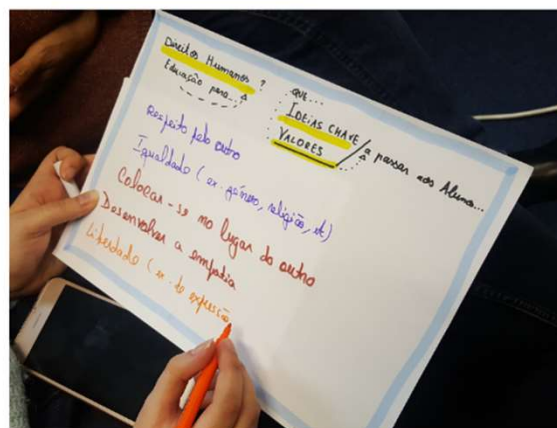 Direitos Humanos ?
Educação para...
QUE...
IDEIAS CHAVE
VALORES / a passar aos Alunos...
Respeito pelo outro
Igualdade (ex. género, religião, et)
Colocar-se no lugar do outro
Desenvolver a empatia
Liberdade (ex. de expressão